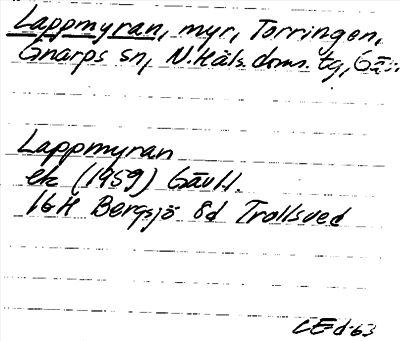 Lappmyran, myr, Torringen,
Gnarps sn, N.Häls. doms. tg, Gäv.
Lappmyran
ek (1959) Gävl.
16H Bergsjö 8d Trollsved
LEd-63